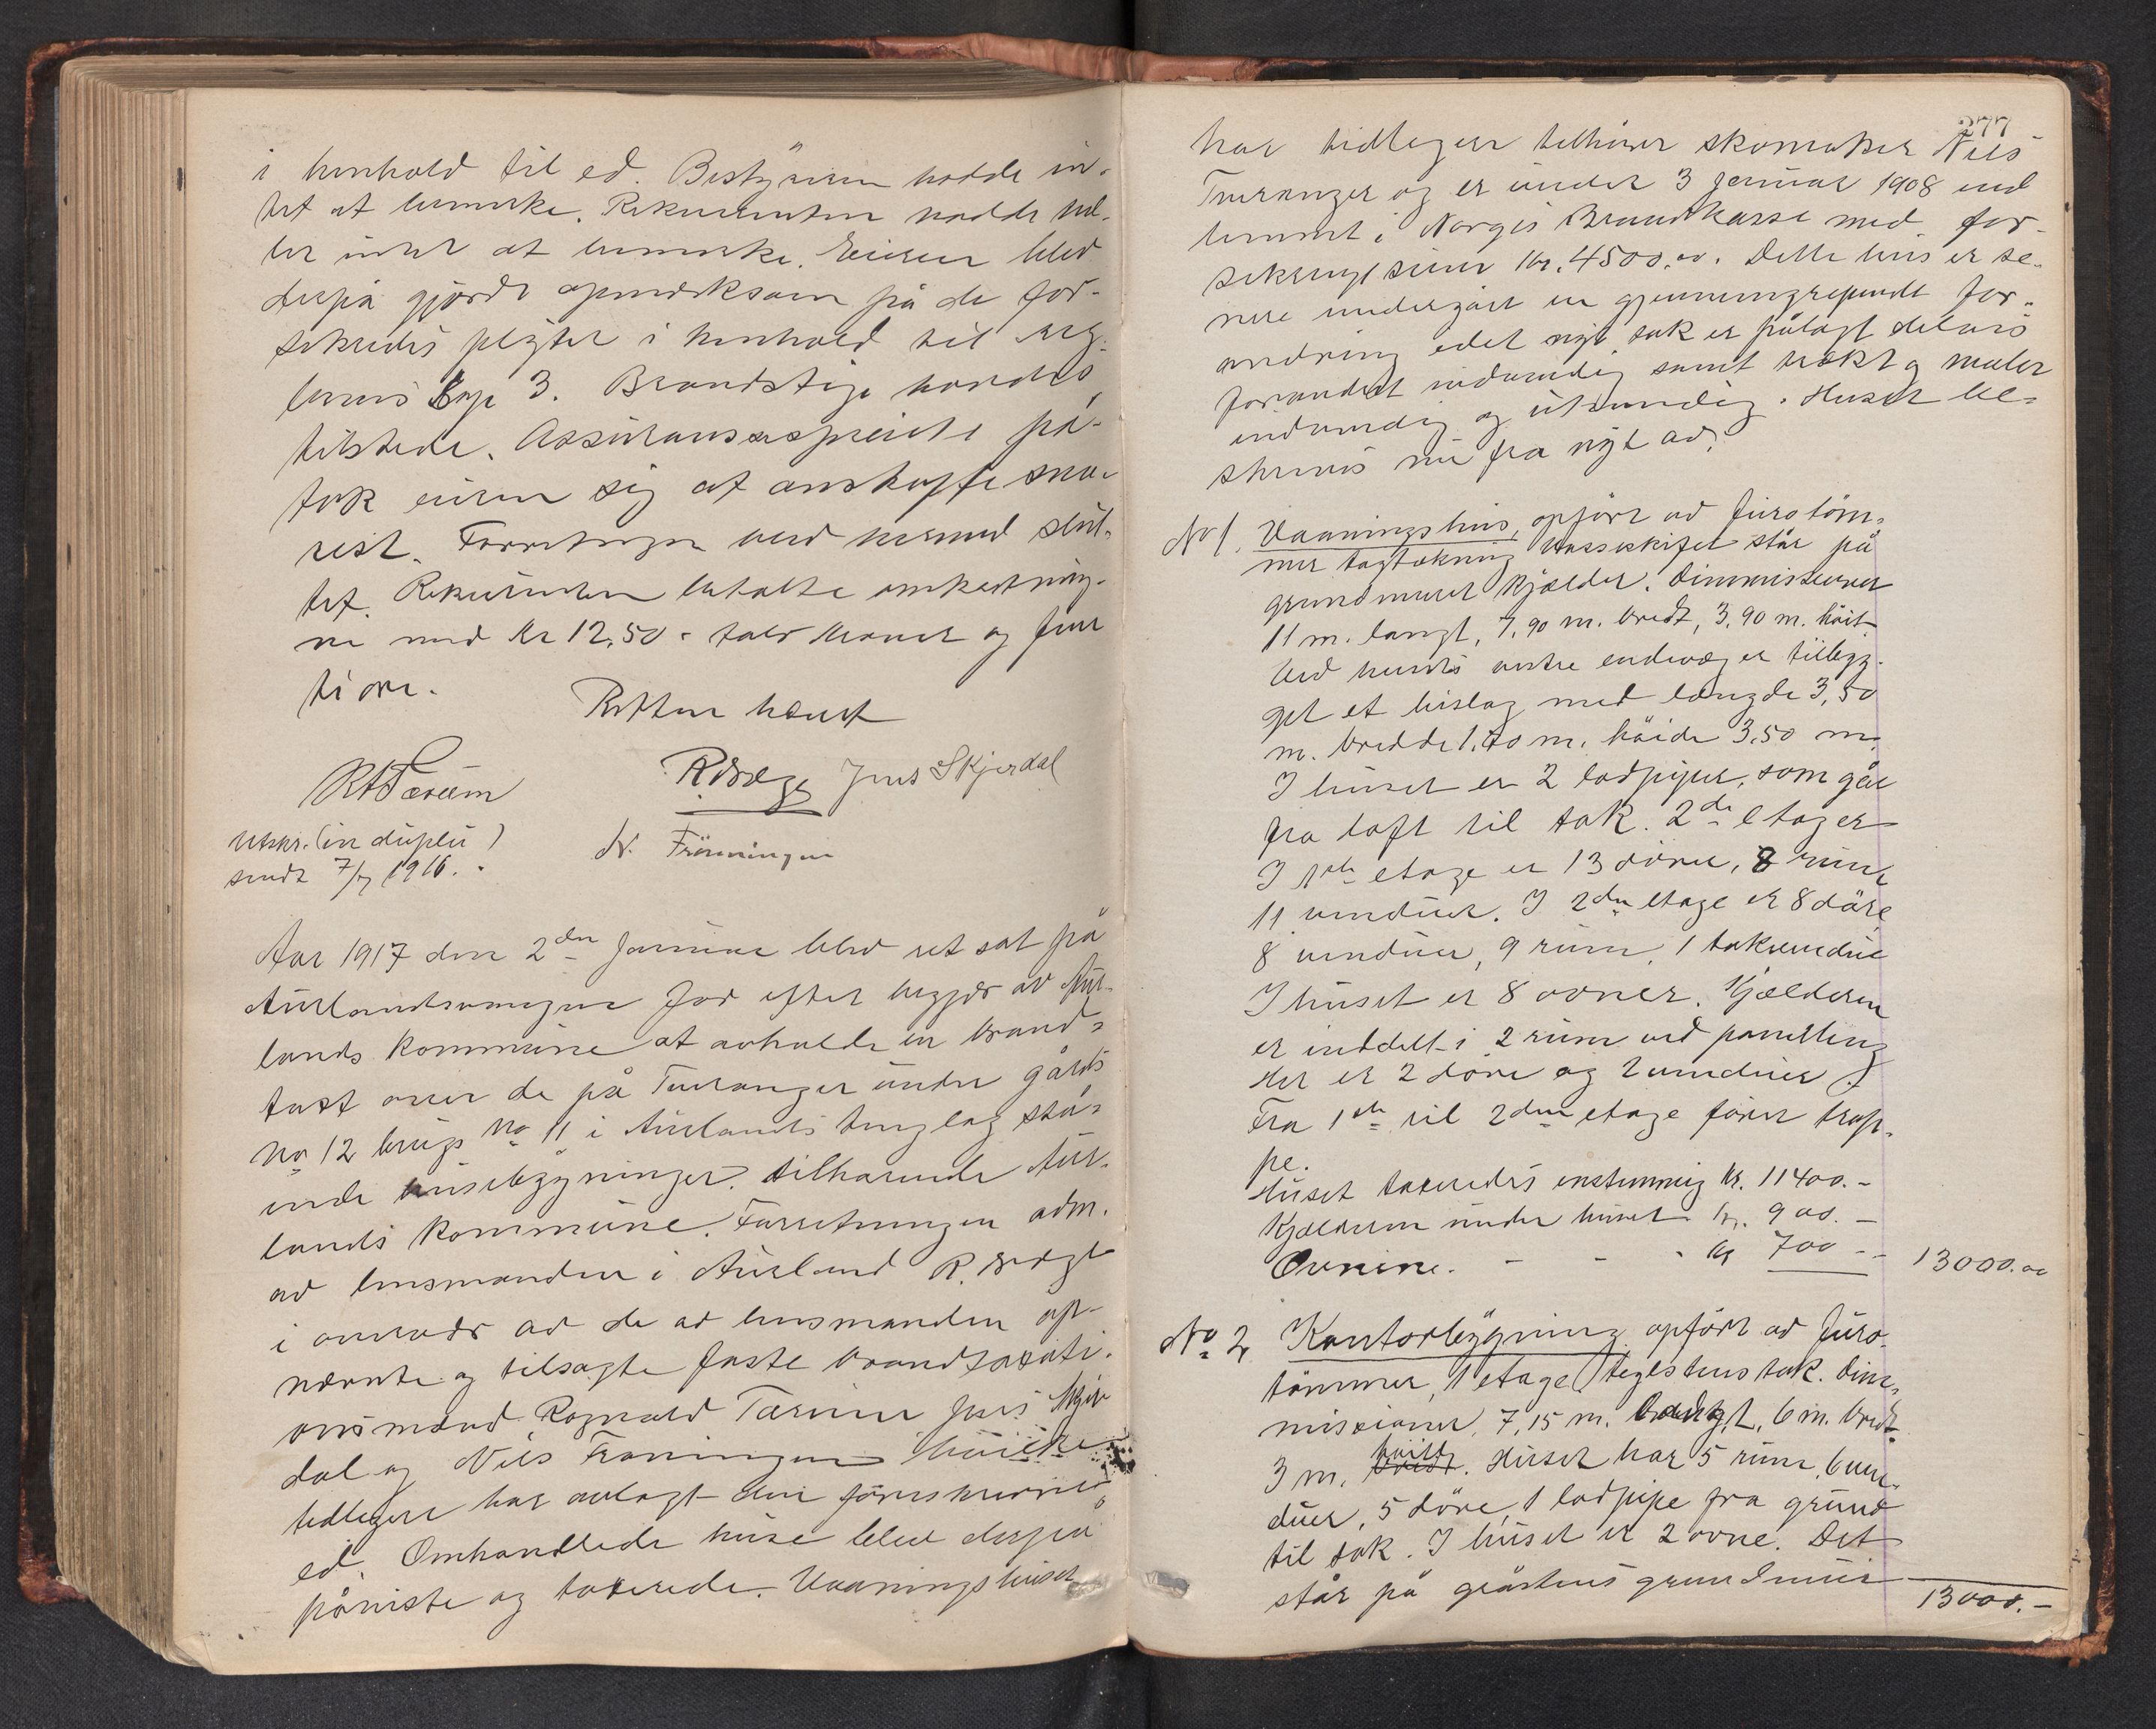 i henhold til ed. Bestyreren hadde in-
tet at bemerke. Rekvirenten hadde hel-
ler intet at bemerke. Eieren blev
derpå gjordt opmerksom på de for-
sikredes pligter i henhold til reg-
lernes kap 3. Brandstige havdes
tilstede. Assuransesprøite på-
tok eieren sig at anskaffe sna-
rest. Forretningen blev hermed slut-
tet. Rekvirenten betalte omkostning-
ne med kr 12.50 - tolv kroner og fem
ti øre.
Retten hævet
RTærum
RBrægg Jens Skjerdal
N. Frönningen
Utskr. (in duplu)
sendt 7/7 1916.
Aar 1917 den 2den Januar blev ret sat på
Aurlandsvangen for efter begjær av Aur-
lands kommune at avholde en brand-
takst over de på Tveranger under gårds
No 12 brugs No 11 i Aurlands tinglag stå-
ende husebygninger tilhørende Aur-
lands kommune. Forretningen adm.
av lensmanden i Aurland R. Brægg
i overvær av de av lensmanden op-
nævnte og tilsagte faste brandtaxati-
onsmænd Ragnvald Tærum Jens Skjer
dal og Nils Fröningen hvilke
tidligere har avlagt den foreskrevne
ed. Omhandlede huse blev derpå
påviste og taxerede. Vaaningshuset
277
har tidligere tilhörer skomaker Nils
Tveranger og er under 3 Januar 1908 ind
lemmet i Norges Brandkasse med for-
sikringssum kr. 4500.00. Dette hus er se-
nere undergåt en gjennemgripende for-
andring idet nyt tak er pålagt delvis
forandret indvendig samt trækt og malet
indvendig og utvendig. Huset be-
skrives nu fra nyt av:
No 1. Vaaningshus, opfört av furutöm-
mer tagtækning Vossaskifer står på
grundmuret kjælder. Dimmisioner
11 m. langt, 7,90 m. bredt, 3,90 m. höit.
Ved husets vestre endevæg er tilbyg-
get et bislag med længde 3,50
m. bredde 1.70 m. höide 3.50 m.
I huset er 2 lodpiper, som går
fra loft til tak. 2de etager
I 1ste etage er 13 döre, 8 rum
11 vinduer. I 2den etage er 8 döre
8 vinduer, 9 rum, 1 takvindue
I huset er 8 ovner. Kjælderen
er inddelt i 2 rum ved panelling
Her er 2 döre og 2 vinduer
Fra 1ste til 2den etage förer trap-
pe.
Huset taxeredes enstemmig kr. 11400.-
Kjælderen under huset kr. 900.-
Ovnene. - - - kr 700 -- 13000.00
No 2, Kontorbygning opfört av furu-
tömmer, 1 etage teglstens tak. Dim-
misioner, 7,15 m. langt, 6 m. bredt
3 m. höidt. Huset har 5 rum, 6 vin-
duer, 5 döre, 1 lodpipe fra grund
til tak. I huset er 2 ovne. Det
står på gråstens grundmur
13000.-